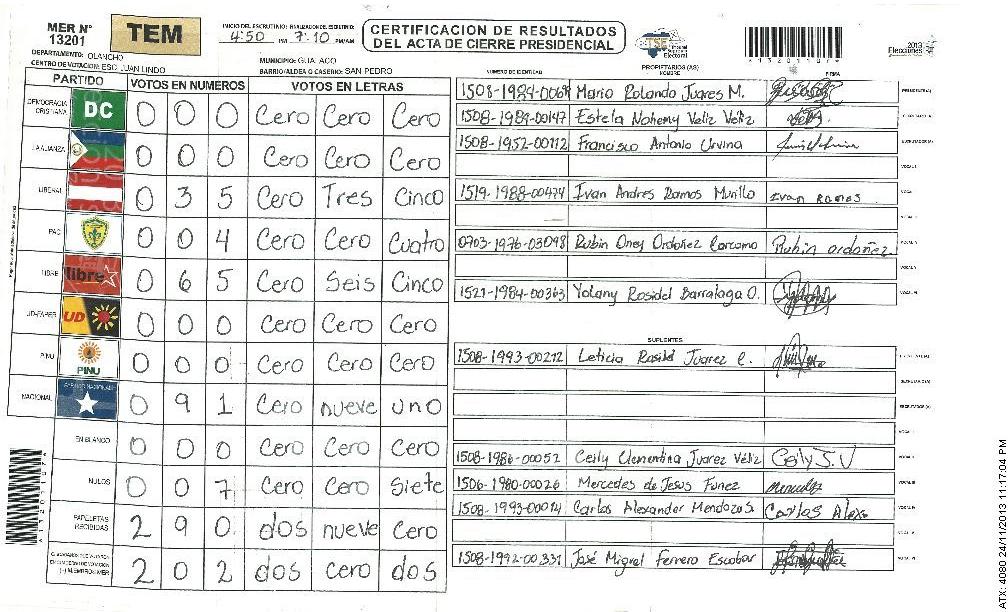 MER N° 13201
TEM
INICIO DEL ESCRUTINIO: FINALIZACION DEL ESCRUTINIO:
4:50 PM 7:10 PM/AM
CERTIFICACION DE RESULTADOS
DEL ACTA DE CIERRE PRESIDENCIAL
TSE Tribunal Supremo Electoral
2013
Elecciones
DEPARTAMENTO: OLANCHO
MUNICIPIO: GUALACO
CENTRO DE VOTACION: ESC. JUAN LINDO
BARRIO/ALDEA O CASERIO: SAN PEDRO
NUMERO DE IDENTIDAD
PROPIETARIOS (AS)
NOMBRE
FIRMA
PARTIDO VOTOS EN NUMEROS VOTOS EN LETRAS
DEMOCRACIA CRISTIANA DC 0 0 0 Cero Cero Cero
LA ALIANZA 0 0 0 Cero Cero Cero
LIBERAL 0 3 5 Cero Tres Cinco
PAC 0 0 4 Cero Cero Cuatro
LIBRE libre 0 6 5 Cero Seis Cinco
UD-FAPER UD 0 0 0 Cero Cero Cero
PINU PINU 0 0 0 Cero Cero Cero
NACIONAL 0 9 1 Cero nueve uno
EN BLANCO 0 0 0 Cero Cero Cero
NULOS 0 0 7 Cero Cero Siete
PAPELETAS RECIBIDAS 2 9 0 dos nueve Cero
2 0 2 dos cero dos
Mario Rolando Juares M.
1508-1989-00147 Estela Nohemy Veliz Veliz
1508-1952-00112 Francisco Antonio Urvina
1519-1988-00474 Ivan Andres Ramos Murillo Ivan Ramos
0703-1976-03098 Rubin Oney Ordoñez Carcamo Rubin ordoñez.
1521-1984-00363 Yolany Rosidel Barralaga O.
SUPLENTES
1508-1993-00212 Leticia Rosidel Juarez C.
1508-1986-00052 Ceily Clementina Juarez Véliz Ceily J.V
1506-1980-00026 Mercedes de Jesus Funez
1508-1993-00014 Carlos Alexander Mendoza S. Carlos Alex.
1508-1992-00331 José Miguel Ferrero Escobar
ATX: 4080 24/11/2013 11:17:04 PM